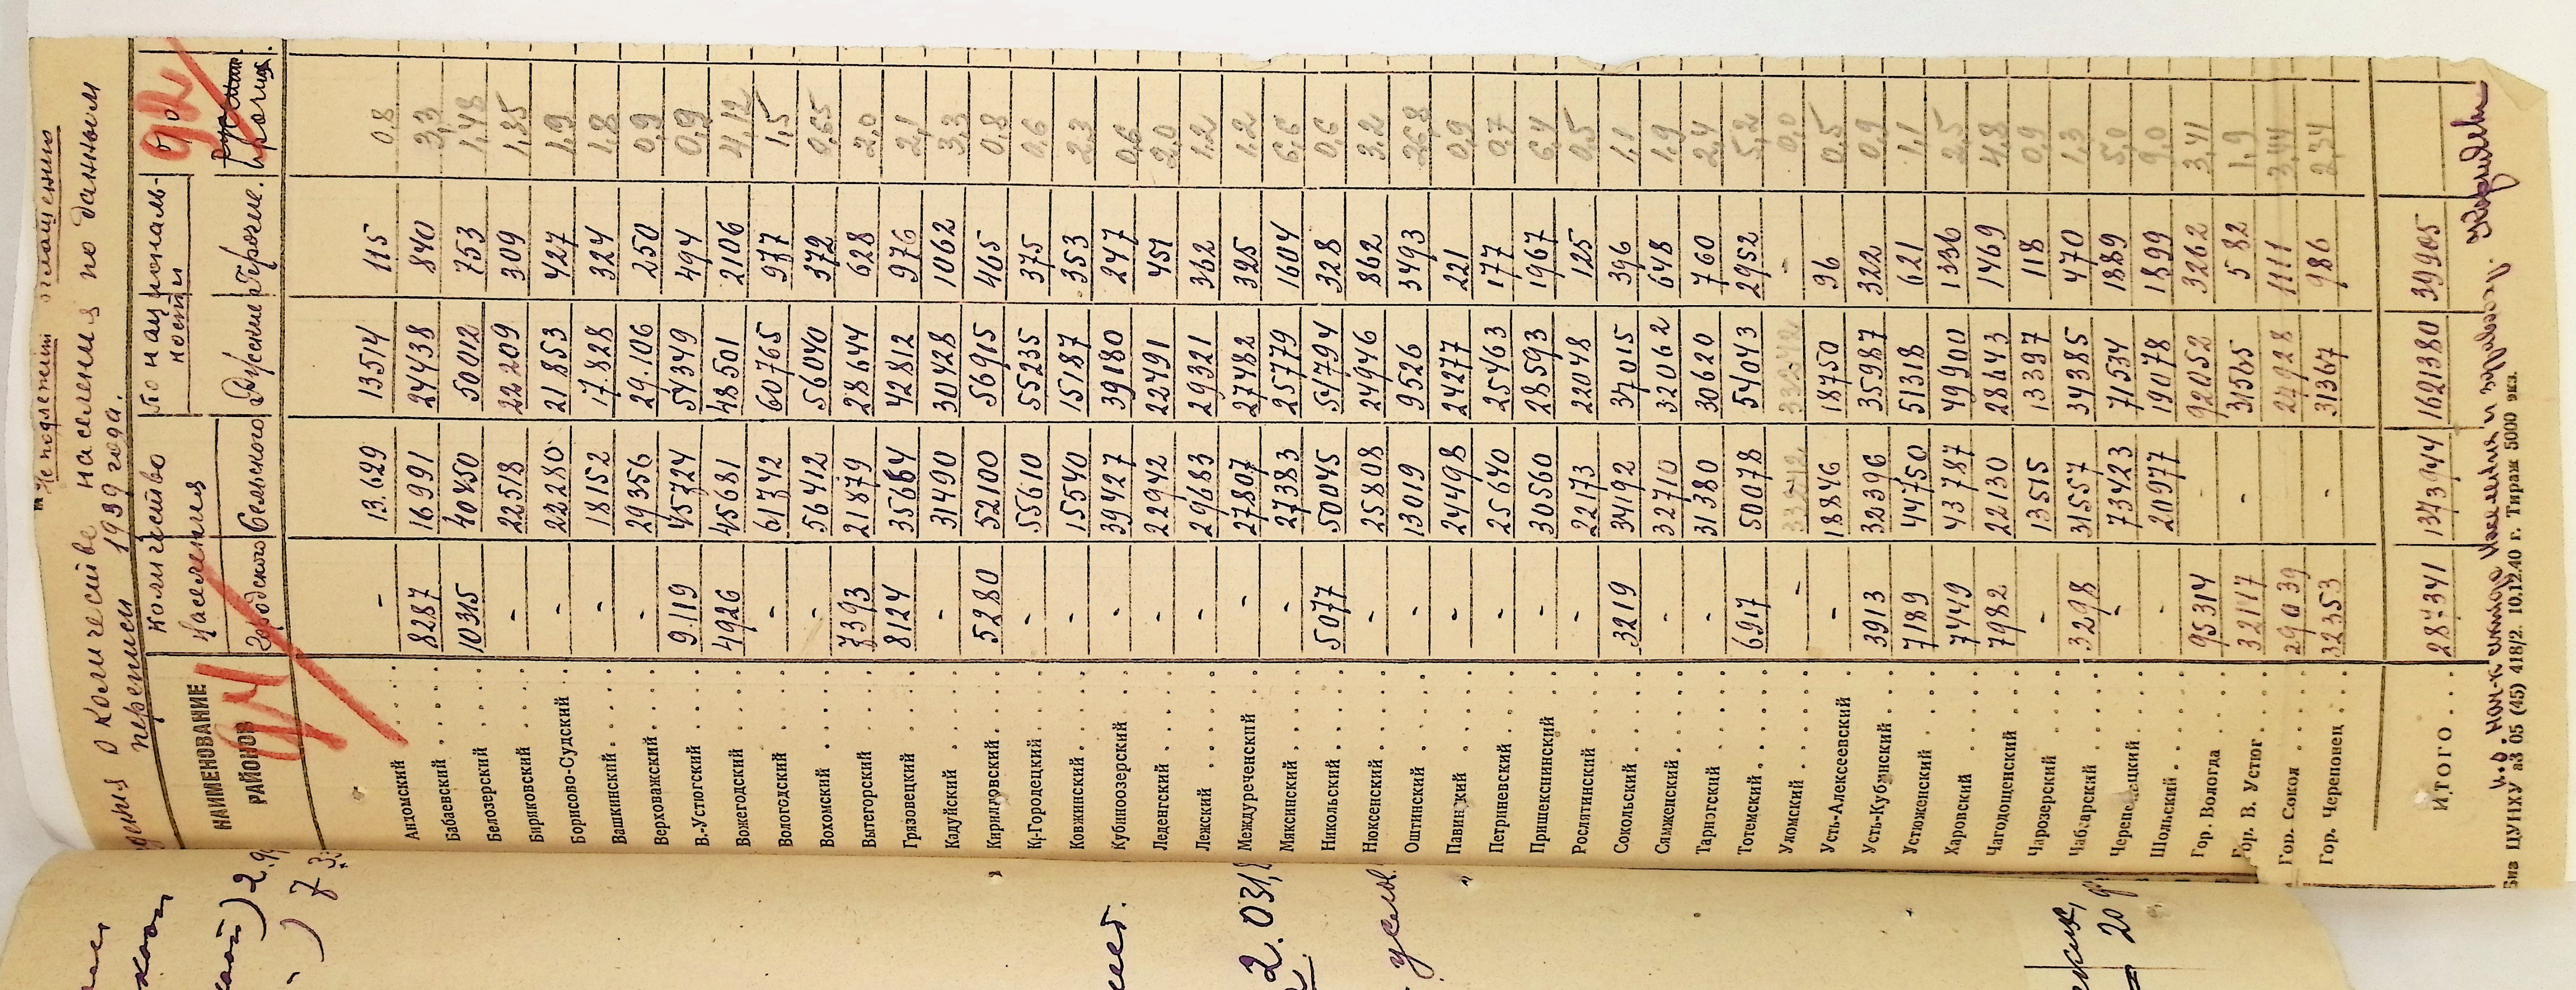 Не подлежит оглашению
о количестве населения по данным
переписи 1939 года.
НАИМЕНОВАНИЕ РАЙОНОВ Количество населения По национальности %
Городского Сельского Русские Прочие. прочих.
Андомский - 13.629 13514 115 0,8
Бабаевский 8287 16991 24438 840 3,3
Белозерский 10315 40450 50012 753 1,48
Биряковский - 22518 22209 309 1,35
Борисово-Судский - 22280 21853 427 1,9
Вашкинский - 18152 17.828 324 1,8
Верховажский - 29356 29.106 250 0,9
В.-Устюгский 9.119 45724 54349 494 0,9
Вожегодский 4926 45681 48501 2106 4,12
Вологодский - 61742 60765 977 1,5
Вохомский - 56412 56040 372 0,65
Вытегорский 7393 21879 28644 628 2,0
Грязовецкий 8124 35664 42812 976 2,1
Кадуйский - 31490 30428 1062 3,3
Кирилловский 5280 52100 56915 465 0,8
К-Городецкий - 55610 55235 375 0,6
Ковжинский - 15540 15187 353 2,3
Кубиноозерский - 39427 39180 247 0,6
Леденгский - 22942 22491 451 2,0
Лежский - 29683 29321 362 1,2
Междуреченский - 27807 27482 325 1,2
Мяксинский - 27383 25779 1604 6,6
Никольский 5077 50045 54794 328 0,6
Нюксенский - 25808 24946 862 3,2
Оштинский - 13019 9526 3493 26,8
Павинский - 24498 24277 221 0,9
Петриневский - 25640 25463 177 0,7
Пришекснинский - 30560 28593 1967 6,4
Рослятинский - 22173 22048 125 0,5
Сокольский 3219 34192 37015 396 1,1
Сямженский - 32710 32062 648 1,9
Тарногский - 31380 30620 760 2,4
Тотемский 6917 50078 54043 2952 5,2
Уломский - 33242 33242 - 0,0
Усть-Алексеевский - 18846 18750 96 0,5
Усть-Кубинский 3913 32396 35987 322 0,9
Устюженский 7189 44750 51318 621 1,1
Харовский 7449 43787 49900 1336 2,5
Чагодощенский 7982 22130 28643 1469 4,8
Чарозерский - 13515 13397 118 0,9
Чебсарский 3298 31557 34385 470 1,3
Череповецкий - 73423 71534 1889 5,0
Шольский - 20977 19078 1899 9,0
Гор. Вологда 95314 - 92052 3262 3,41
Гор. В. Устюг 32147 - 31565 582 1,9
Гор. Сокол 29039 24928 1111 3,44
Гор. Череповец 32353 - 31367 986 2,34
ИТОГО 287341 1373944 1621380 39905
И.о нач-к сектора населения и здравоохр.
Биз ЦУНХУ аЗ 05 (45) 418/2. 10.12.40 г. Тираж 5000 экз.